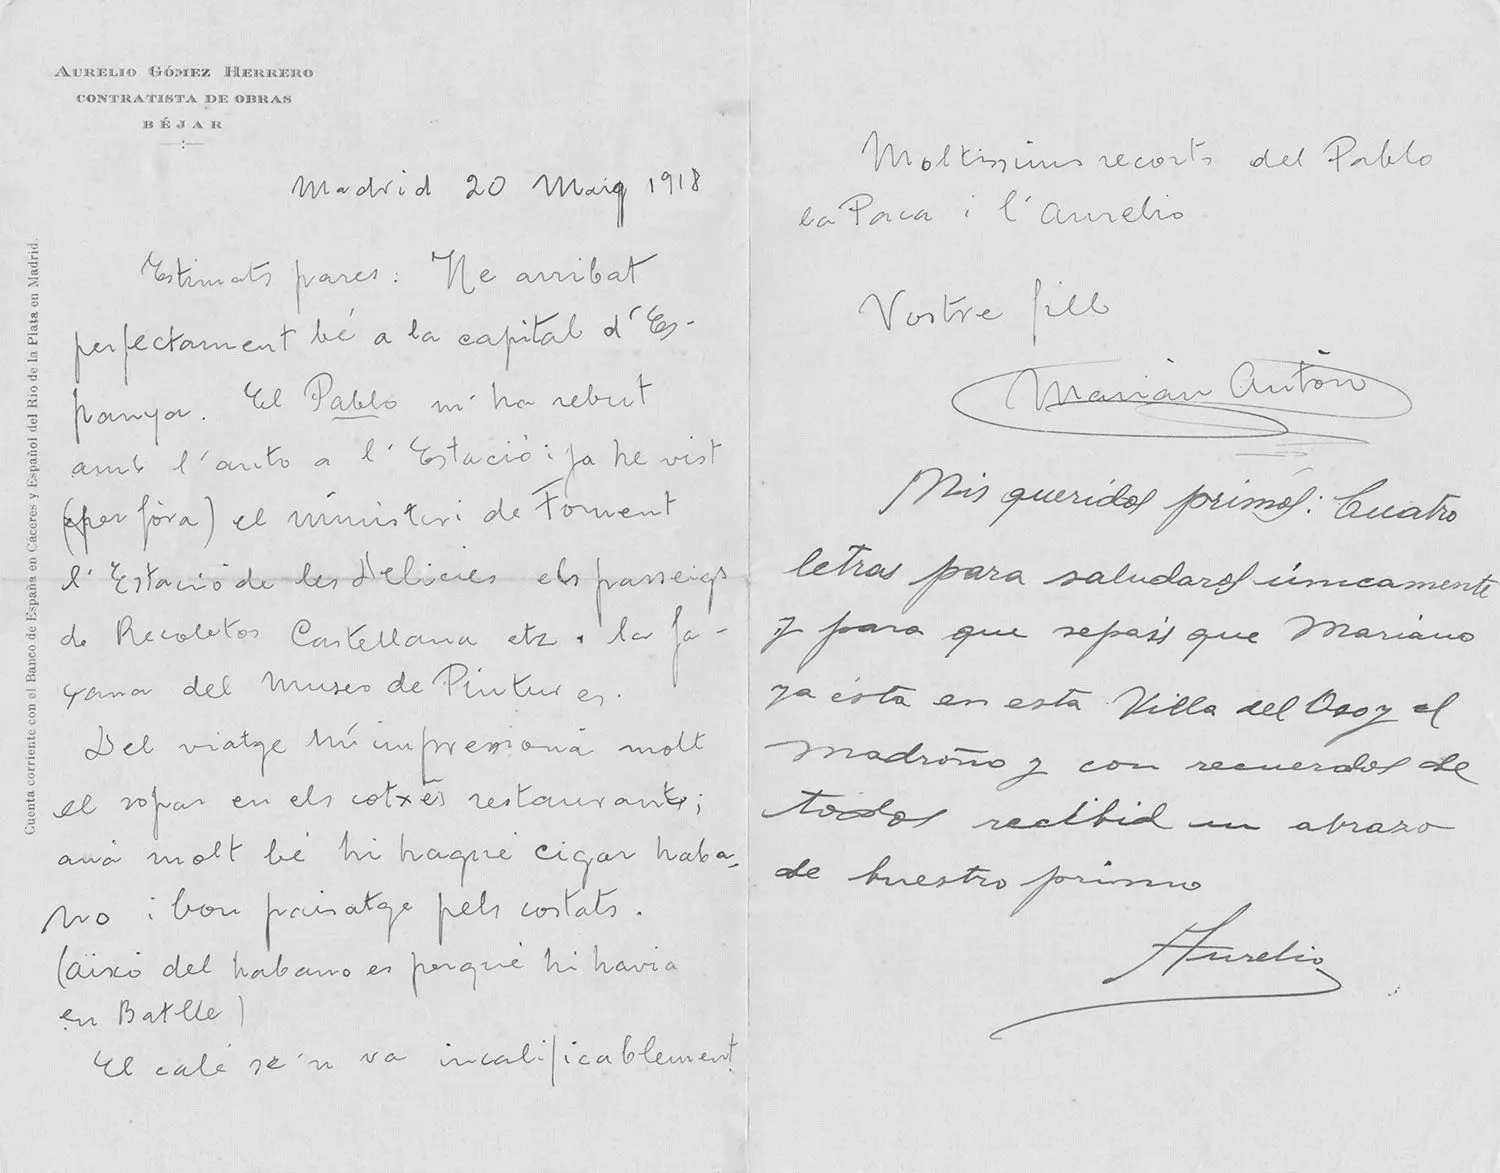 AURELIO GÓMEZ HERRERO
CONTRATISTA DE OBRAS
BÉJAR
Cuenta corriente con el Banco de España en Cáceres y Español del Rio de la Plata en Madrid.
Madrid 20 Maig 1918
Estimats pares: He arribat
perfectament bé a la capital d'Es-
panya. El Pablo m'ha rebut
amb l'auto a l'Estació i ja he vist
(per fòra) el ministeri de Foment
l'Estació de les Delicies els passeigs
de Recoletos Castellana etz. la fa-
çana del Museo de Pintures.
Del viatge m'impressioná molt
el sopar en els cotxes restaurants;
aná molt bé hi hagué cigar haba-
no i bon paisatge pels costats.
(aixó del habano es perqué hi havia
en Batlle)
El calé se'n va incalificablement
Moltissims recorts del Pablo
la Paca i l'Aurelio
Vostre fill
Marián Antón
Mis queridos primos: Cuatro
letras para saludaros únicamente
y para que sepais que Mariano
ya ésta en esta Villa del Oso y el
Madroño y con recuerdos de
todos recibid un abrazo
de buestro primo
Aurelio